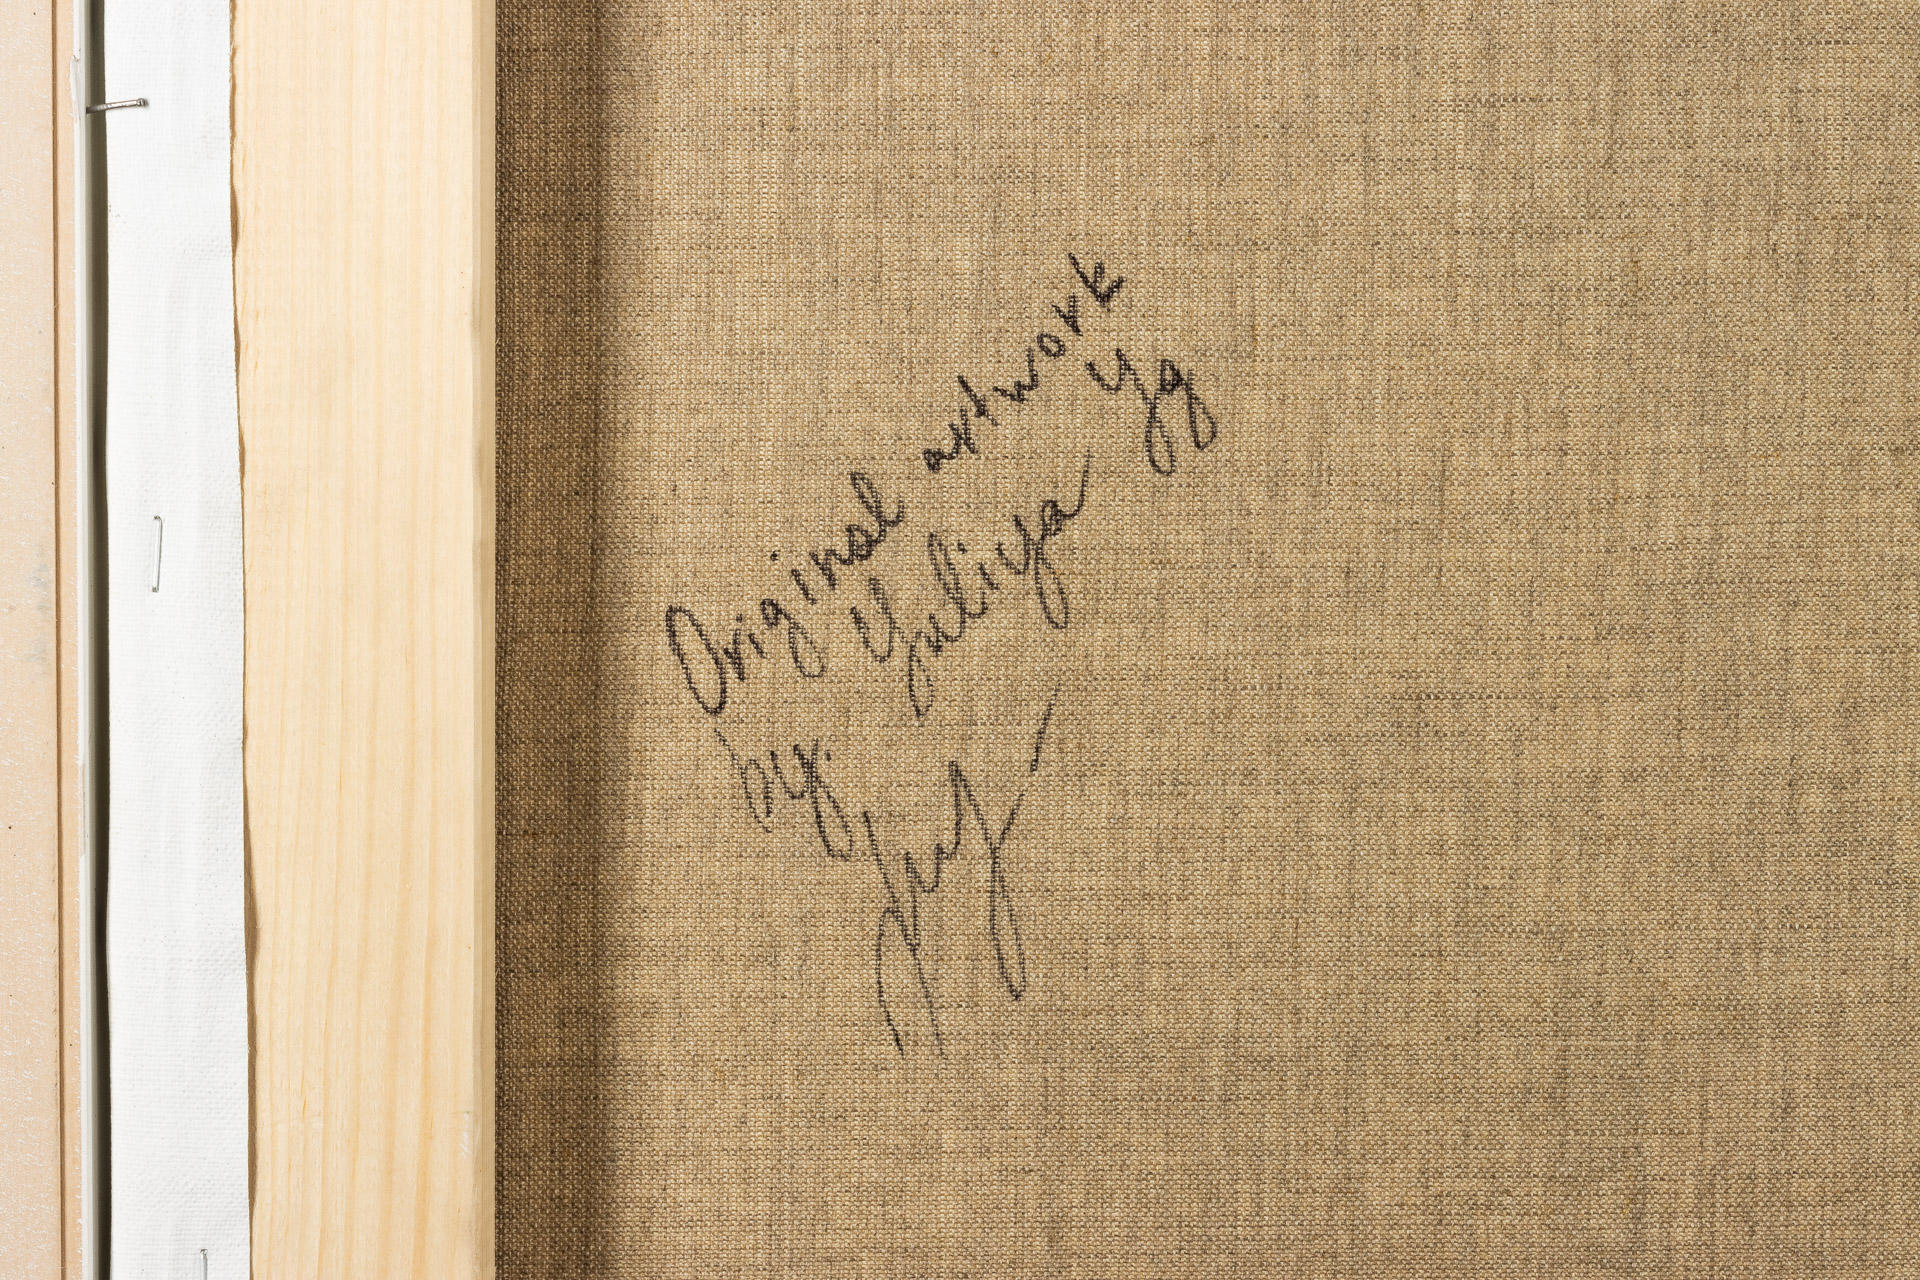 Original artwork
by: Yuliya yg